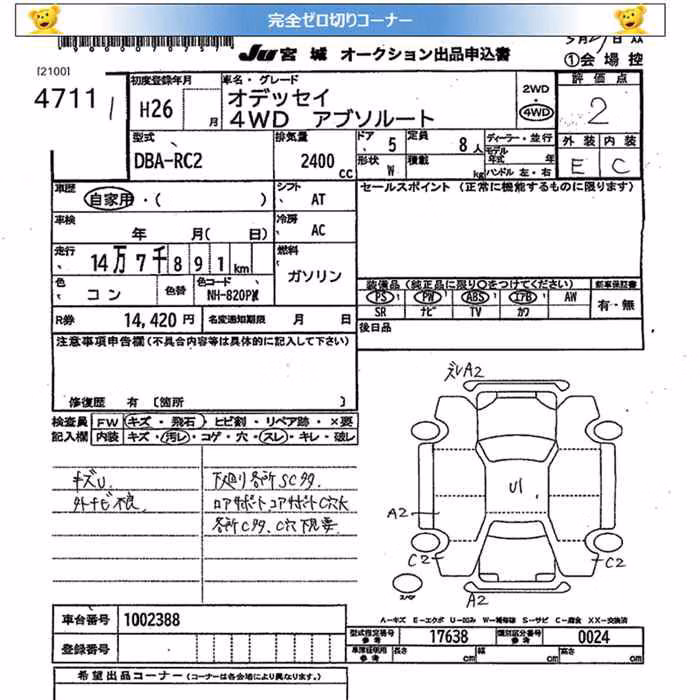 完全ゼロ切りコーナー
JU 宮城 オークション出品申込書
①会場控
[2100]
4711
初度登録年月
H26 月
車名・グレード
オデッセイ
4WD アブソルート
2WD
4WD
評価点
2
外装 内装
E C
型式
DBA-RC2
排気量
2400 cc
ドア 5
形状 W
定員 8人
積載 kg
ディーラー・並行
モデル年式 年
ハンドル 左・右
車歴
自家用・( )
シフト AT
セールスポイント (正常に機能するものに限ります)
車検
年 月( 日)
冷房 AC
走行
14万7千891km
燃料
ガソリン
色 コン
色替
色コード NH-820PM
装備品(純品に限り○をつけてください)
新車保証書
PS PW ABS エアB AW
SR ナビ TV カワ
有・無
R券 14,420円
名変通知期限 月 日
後日品
注意事項申告欄(不具合内容等は具体的に記入して下さい)
修復歴 有 [箇所 ]
検査員 FW キズ・飛石・ヒビ割・リペア跡・×要
記入欄 内装 キズ・汚レ・コゲ・穴・スレ・キレ・破レ
キズU
外ナビ不良
下廻り各所SC多
ロアサポートコアサポートC穴大
各所C多、C穴下見要
ズレA2
U1
A2
C2
C2
A2
スペア
A-キズ E-エクボ U-凹み W-補修跡 S-サビ C-腐食 XX-交換済
車台番号 1002388
登録番号
型式指定番号 参考 17638
類別区分番号 参考 0024
車庫証明用 参考 長さ cm 幅 cm 高さ cm
希望出品コーナー (コーナーは各会場により異なります。)